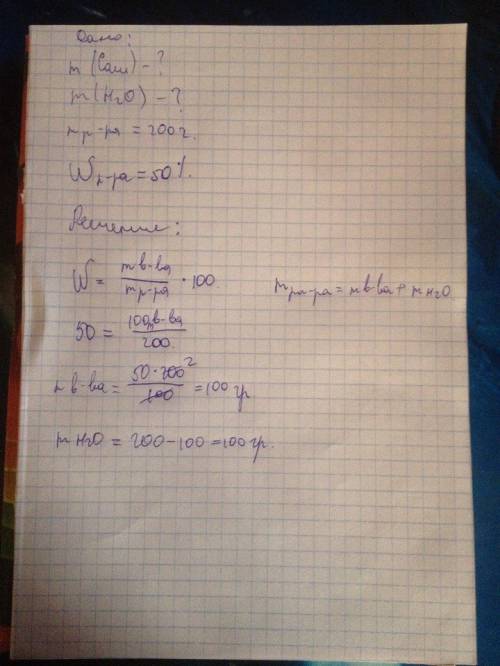 Дано:
m (Соли) - ?
m (H₂O) - ?
m р-ра = 200 г.
W р-ра = 50%.
Решение:
W = m в-ва / m р-ра · 100.
m р-ра = m в-ва + m H₂O
50 = 100 m в-ва / 200
m в-ва = 50 · 200 2 / 100 = 100 гр
m H₂O = 200 - 100 = 100 гр.